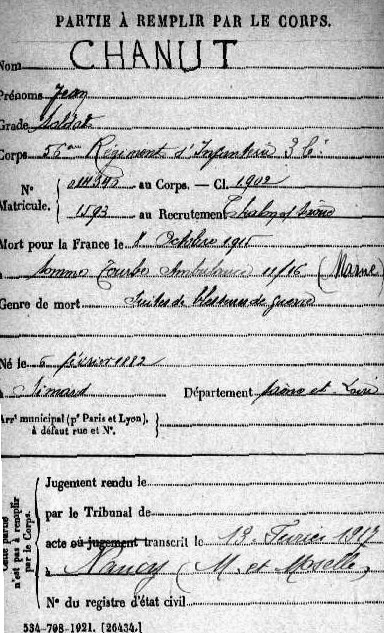 PARTIE À REMPLIR PAR LE CORPS.
Nom CHANUT
Prénoms Jean
Grade Soldat
Corps 56ème Régiment d'Infanterie 3 Cie
N° Matricule. au Corps. — Cl. 1902
1593 au Recrutement Chalon s/ Saône
Mort pour la France le 8 Octobre 1915
à Somme Tourbe Ambulance 11/16 (Marne)
Genre de mort Suites de blessures de guerre
Né le 6 février 1882
à Simard Département Saône et Loire
Arrt municipal (pr Paris et Lyon), à défaut rue et N°.
Cette partie n'est pas à remplir par le Corps.
Jugement rendu le
par le Tribunal de
acte ou jugement transcrit le 13 Février 1917
à Nancy (M. et Moselle)
N° du registre d'état civil
534-708-1921. [26434.]